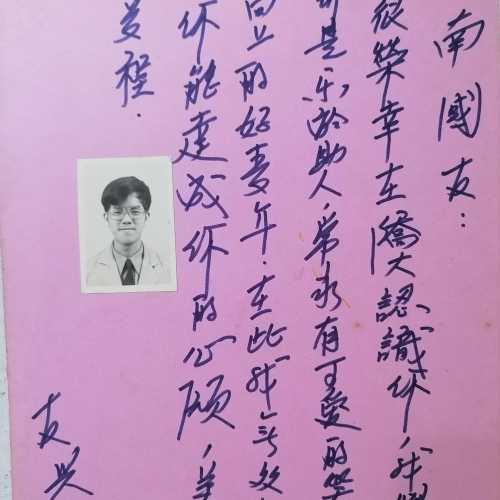 南國友：
很榮幸在僑大認識你，我
是乐於助人，常永有可愛的笑
向上的好青年．在此我
你能達成你的心願，並
前程．
友